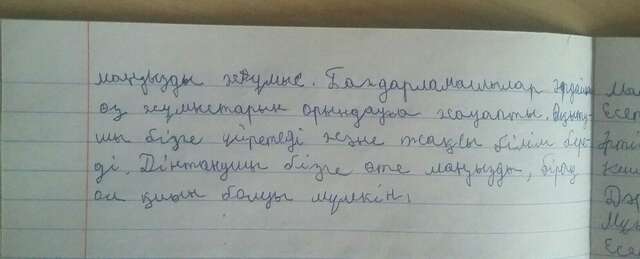 маңызды жұмыс. Бағдарламашылар
өз жұмыстарын орындауға жауапты. Оқыту-
шы бізге үйретеді және жақсы білім бере-
ді. Дінтанушы бізге өте маңызды, бірақ
ол қиын болуы мүмкін.
Есеп
Мұғ
Есе